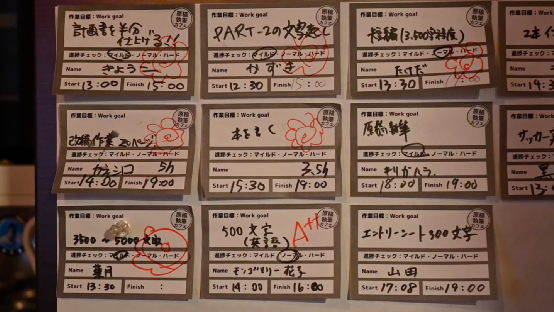 作業目標：Work goal
計画書を半分
仕上げる!!
進捗チェック：マイルド・ノーマル・ハード
Name きょうこ
Start 13:00 Finish 15:00
原稿執筆カフェ
作業目標：Work goal
PART-2の文字起こし
進捗チェック：マイルド・ノーマル・ハード
Name かずき
Start 12:30 Finish 15:00
作業目標：Work goal
投稿(3,500字程度)
進捗チェック：マイルド・ノーマル・ハード
Name たけだ
Start 13:30 Finish
原稿執筆カフェ
作業目標
2本
進捗チェック
Name
Start
作業目標：Work goal
改稿作業 20ページ
進捗チェック：マイルド・ノーマル・ハード
Name 5h
Start 14:00 Finish 19:00
原稿執筆カフェ
作業目標：Work goal
本を書く
進捗チェック：マイルド・ノーマル・ハード
Name 3.5h
Start 15:30 Finish 19:00
原稿執筆カフェ
作業目標：Work goal
原稿執筆
進捗チェック：マイルド・ノーマル・ハード
Name
Start 18:00 Finish 19:00
原稿執筆カフェ
作業目標
サッカー
進捗チェック
Name
Start 13:
作業目標：Work goal
3500〜5000文字
進捗チェック：マイルド・ノーマル・ハード
Name 葉月
Start 13:30 Finish :
原稿執筆カフェ
作業目標：Work goal
500文字
(英語)
A++
進捗チェック：マイルド・ノーマル・ハード
Name モンゴメリー花子
Start 14:00 Finish 16:00
原稿執筆カフェ
作業目標：Work goal
エントリーシート300文字
進捗チェック：マイルド・ノーマル・ハード
Name 山田
Start 17:08 Finish 19:00
原稿執筆カフェ